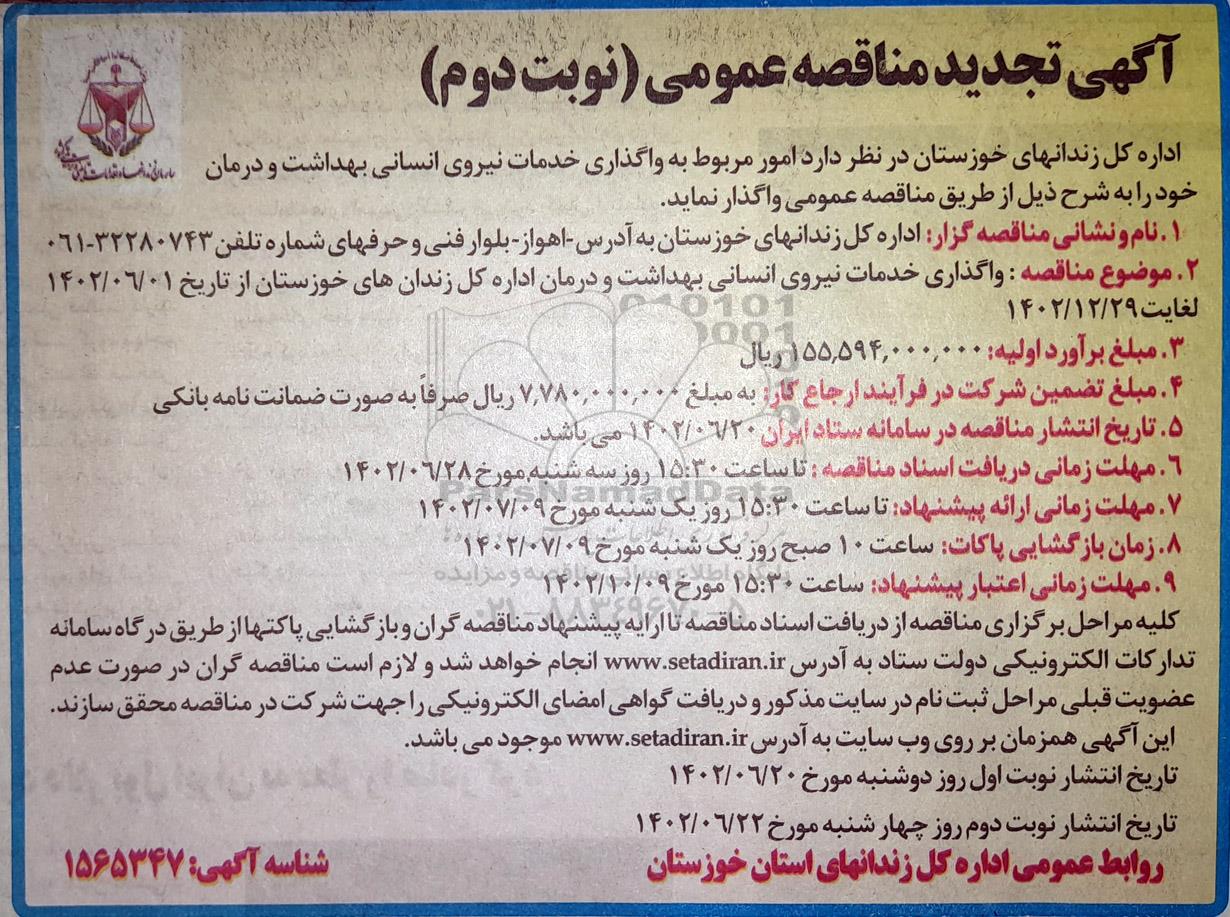 آگهی تجدید مناقصه عمومی (نوبت دوم)
اداره کل زندانهای خوزستان در نظر دارد امور مربوط به واگذاری خدمات نیروی انسانی بهداشت و درمان
خود را به شرح ذیل از طریق مناقصه عمومی واگذار نماید.
۱. نام و نشانی مناقصه گزار: اداره کل زندانهای خوزستان به آدرس-اهواز-بلوار فنی و حرفهای شماره تلفن ۳۲۲۸۰۷۴۳-۰۶۱
۲. موضوع مناقصه : واگذاری خدمات نیروی انسانی بهداشت و درمان اداره کل زندان های خوزستان از تاریخ ۱۴۰۲/۰۶/۰۱
لغایت ۱۴۰۲/۱۲/۲۹
۳. مبلغ برآورد اولیه: ۱۵۵,۵۹۴,۰۰۰,۰۰۰ ریال
۴. مبلغ تضمین شرکت در فرآیند ارجاع کار: به مبلغ ۷,۷۸۰,۰۰۰,۰۰۰ ریال صرفاً به صورت ضمانت نامه بانکی
۵. تاریخ انتشار مناقصه در سامانه ستاد ایران ۱۴۰۲/۰۶/۲۰ می باشد.
۶. مهلت زمانی دریافت اسناد مناقصه : تا ساعت ۱۵:۳۰ روز سه شنبه مورخ ۱۴۰۲/۰۶/۲۸
۷. مهلت زمانی ارائه پیشنهاد: تا ساعت ۱۵:۳۰ روز یک شنبه مورخ ۱۴۰۲/۰۷/۰۹
۸. زمان بازگشایی پاکات: ساعت ۱۰ صبح روز یک شنبه مورخ ۱۴۰۲/۰۷/۰۹
۹. مهلت زمانی اعتبار پیشنهاد: ساعت ۱۵:۳۰ مورخ ۱۴۰۲/۱۰/۰۹
کلیه مراحل برگزاری مناقصه از دریافت اسناد مناقصه تا ارایه پیشنهاد مناقصه گران و بازگشایی پاکتها از طریق درگاه سامانه
تدارکات الکترونیکی دولت ستاد به آدرس www.setadiran.ir انجام خواهد شد و لازم است مناقصه گران در صورت عدم
عضویت قبلی مراحل ثبت نام در سایت مذکور و دریافت گواهی امضای الکترونیکی را جهت شرکت در مناقصه محقق سازند.
این آگهی همزمان بر روی وب سایت به آدرس www.setadiran.ir موجود می باشد.
تاریخ انتشار نوبت اول روز دوشنبه مورخ ۱۴۰۲/۰۶/۲۰
تاریخ انتشار نوبت دوم روز چهار شنبه مورخ ۱۴۰۲/۰۶/۲۲
روابط عمومی اداره کل زندانهای استان خوزستان
شناسه آگهی: ۱۵۶۵۳۴۷
ParsNamadData
۰۲۱-۸۸۳۴۹۶۷۰-۵